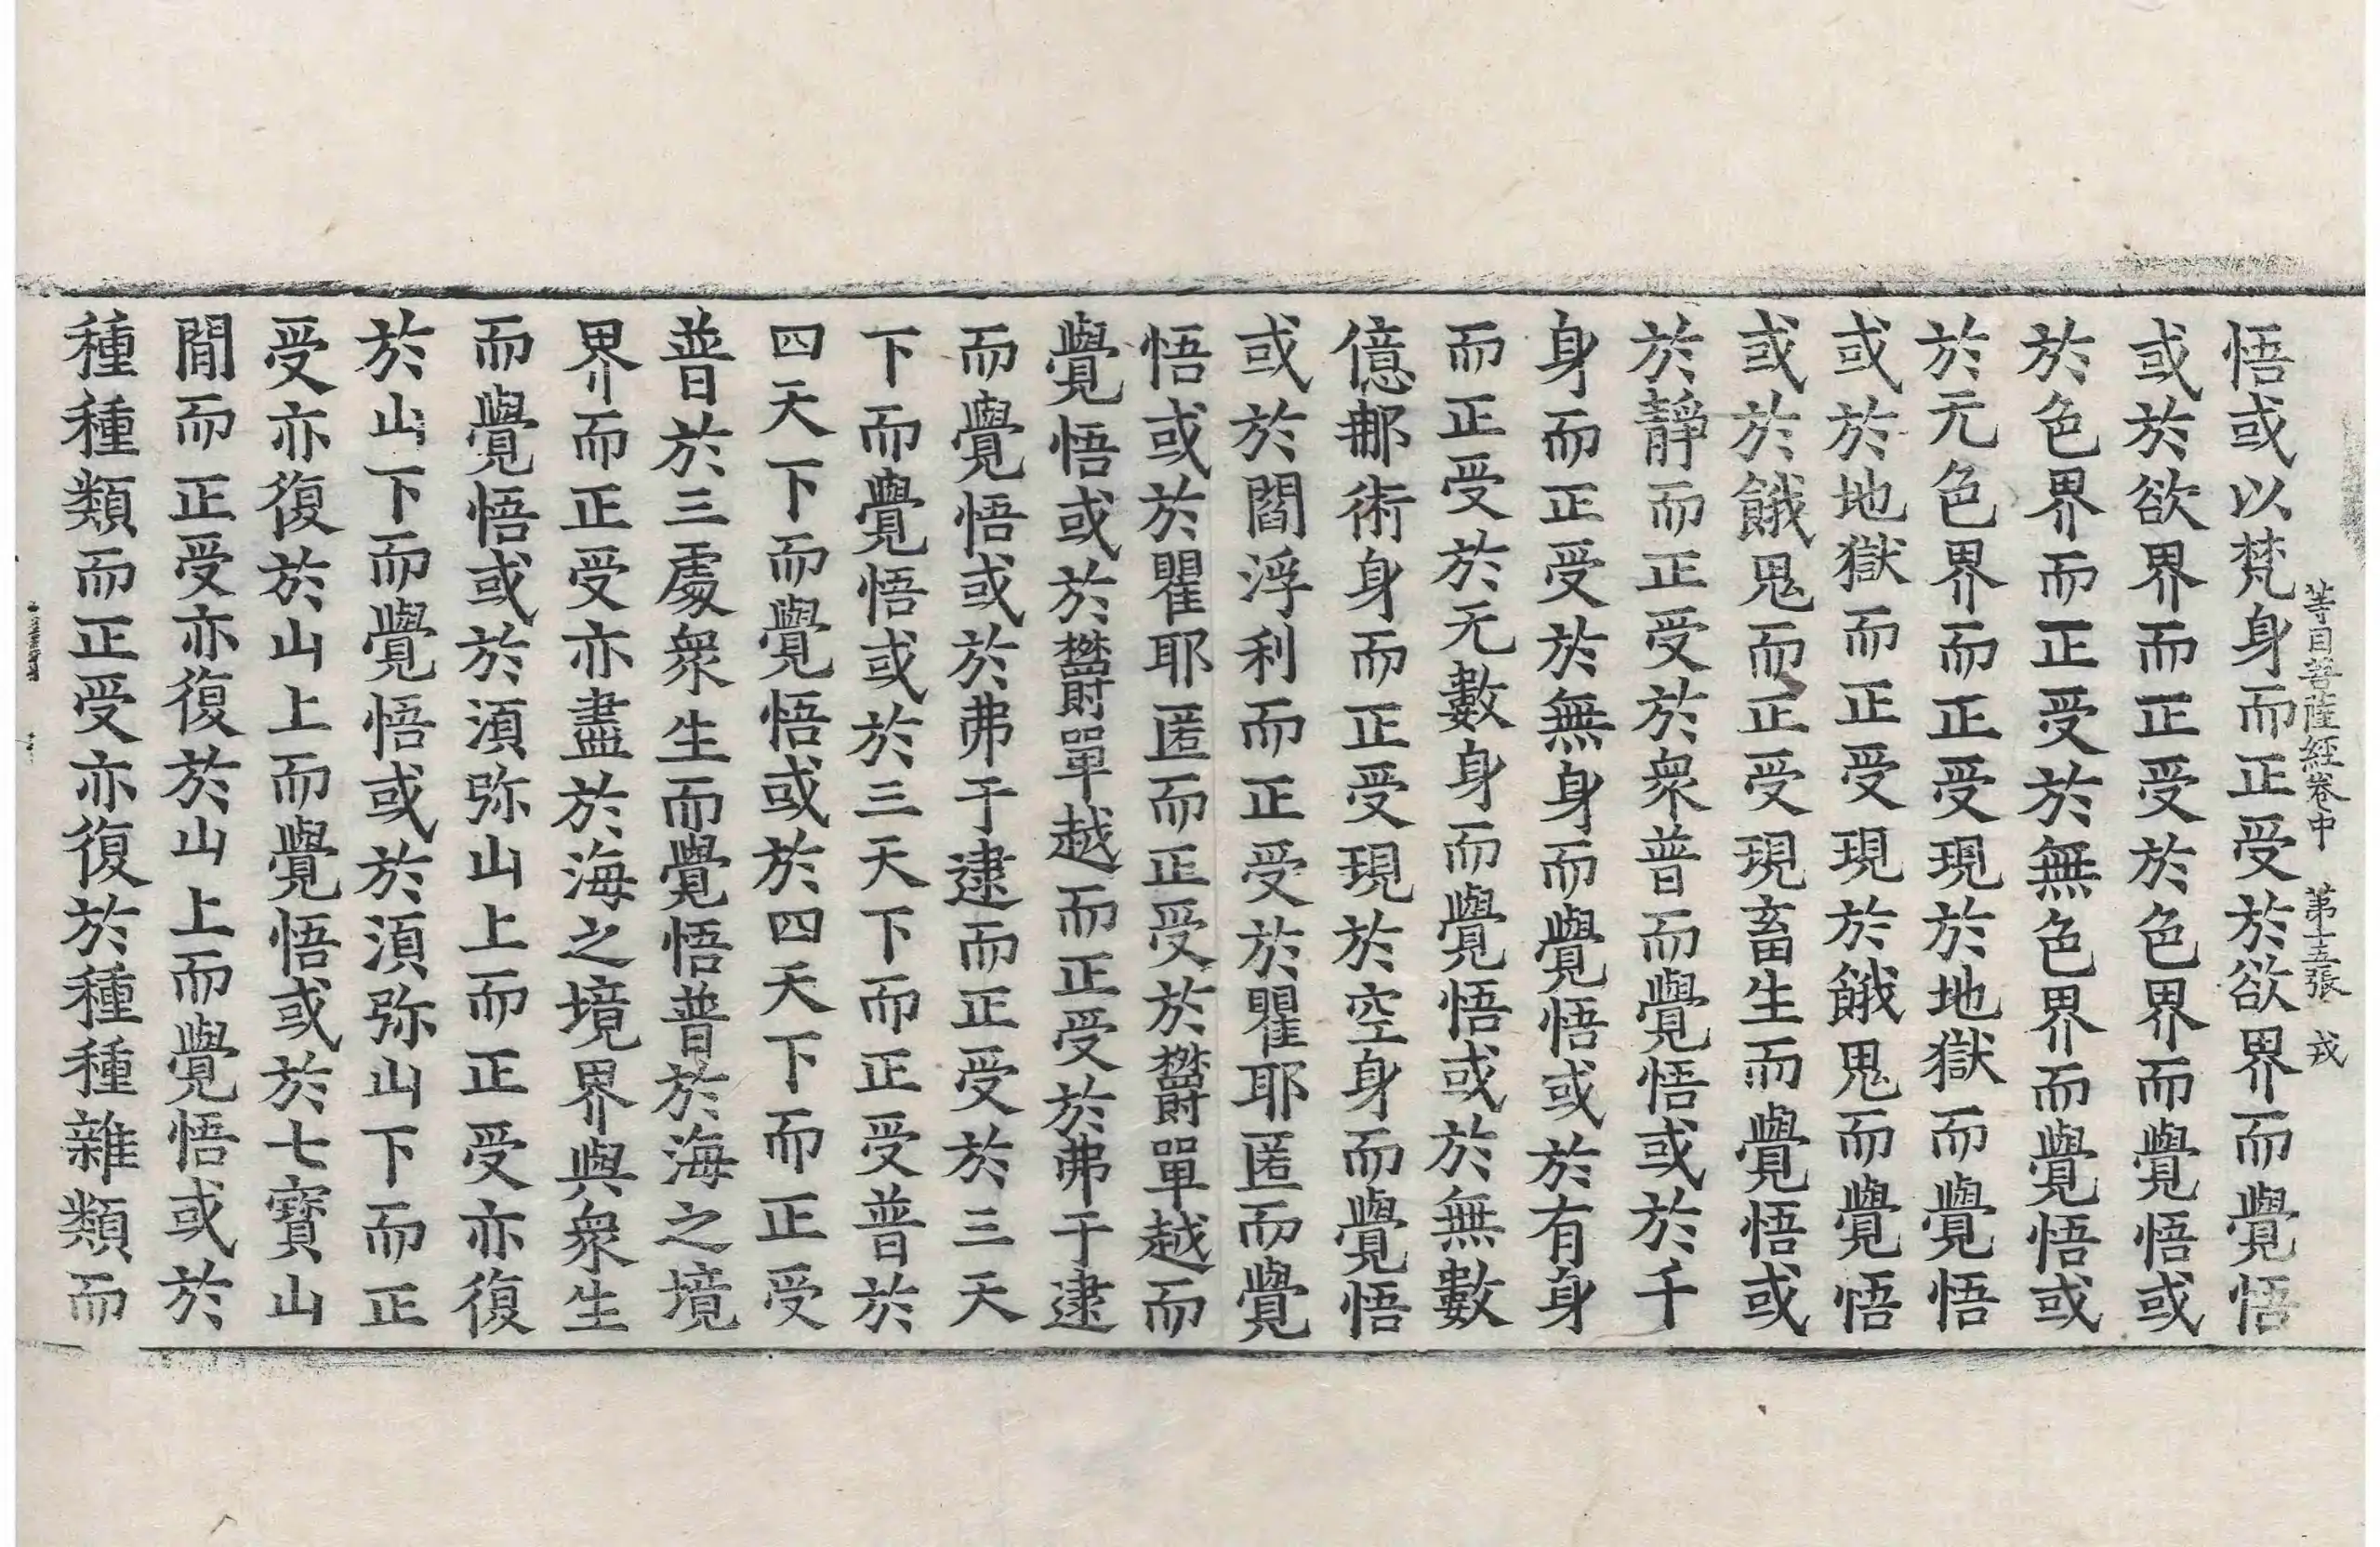 等目菩薩經卷中 第十五張 戎
悟或以梵身而正受於欲界而覺悟
或於欲界而正受於色界而覺悟或
於色界而正受於無色界而覺悟或
於无色界而正受現於地獄而覺悟
或於地獄而正受現於餓鬼而覺悟
或於餓鬼而正受現畜生而覺悟或
於靜而正受於衆普而覺悟或於千
身而正受於無身而覺悟或於有身
而正受於无數身而覺悟或於無數
億郍術身而正受現於空身而覺悟
或於閻浮利而正受於瞿耶匿而覺
悟或於瞿耶匿而正受於欝單越而
覺悟或於欝單越而正受於弗于逮
而覺悟或於弗于逮而正受於三天
下而覺悟或於三天下而正受普於
四天下而覺悟或於四天下而正受
普於三處衆生而覺悟普於海之境
界而正受亦盡於海之境界與衆生
而覺悟或於湏弥山上而正受亦復
於山下而覺悟或於湏弥山下而正
受亦復於山上而覺悟或於七寳山
閒而正受亦復於山上而覺悟或於
種種類而正受亦復於種種雜類而